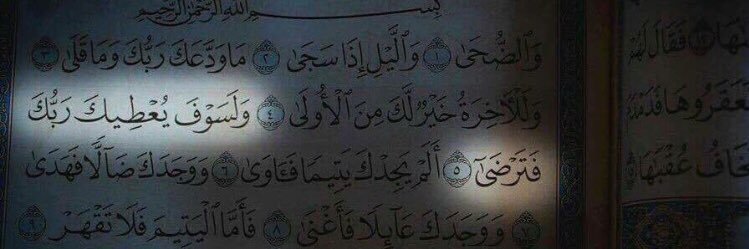 بِسْمِ اللَّهِ الرَّحْمَٰنِ الرَّحِيمِ
وَالضُّحَىٰ ١ وَاللَّيْلِ إِذَا سَجَىٰ ٢ مَا وَدَّعَكَ رَبُّكَ وَمَا قَلَىٰ ٣
وَلَلْآخِرَةُ خَيْرٌ لَّكَ مِنَ الْأُولَىٰ ٤ وَلَسَوْفَ يُعْطِيكَ رَبُّكَ
فَتَرْضَىٰ ٥ أَلَمْ يَجِدْكَ يَتِيمًا فَآوَىٰ ٦ وَوَجَدَكَ ضَالًّا فَهَدَىٰ
٧ وَوَجَدَكَ عَائِلًا فَأَغْنَىٰ ٨ فَأَمَّا الْيَتِيمَ فَلَا تَقْهَرْ ٩
فَقَالَ لَهُمْ
فَعَقَرُوهَا فَدَمْدَمَ
يَخَافُ عُقْبَاهَا ١٥